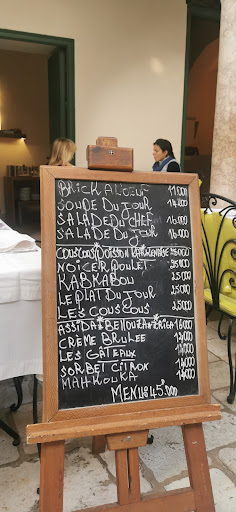 BRICK A L'OEUF 11000
SOUDE DU JOUR 14000
SALADE DU CHEF 16000
SALADE DU JOUR 16000
COUSCOUS POISSON 25000
NOICE R POULET 25000
KABKABOU 25000
LE PLAT DU JOUR 25000
LES COUSCOUS 25000
ASSIDA BELLOUZA 16000
CRÈME BRULEE 12000
LES GÂTEAUX
SORBET CITRON
MAHKOUKA
MENU 45.000